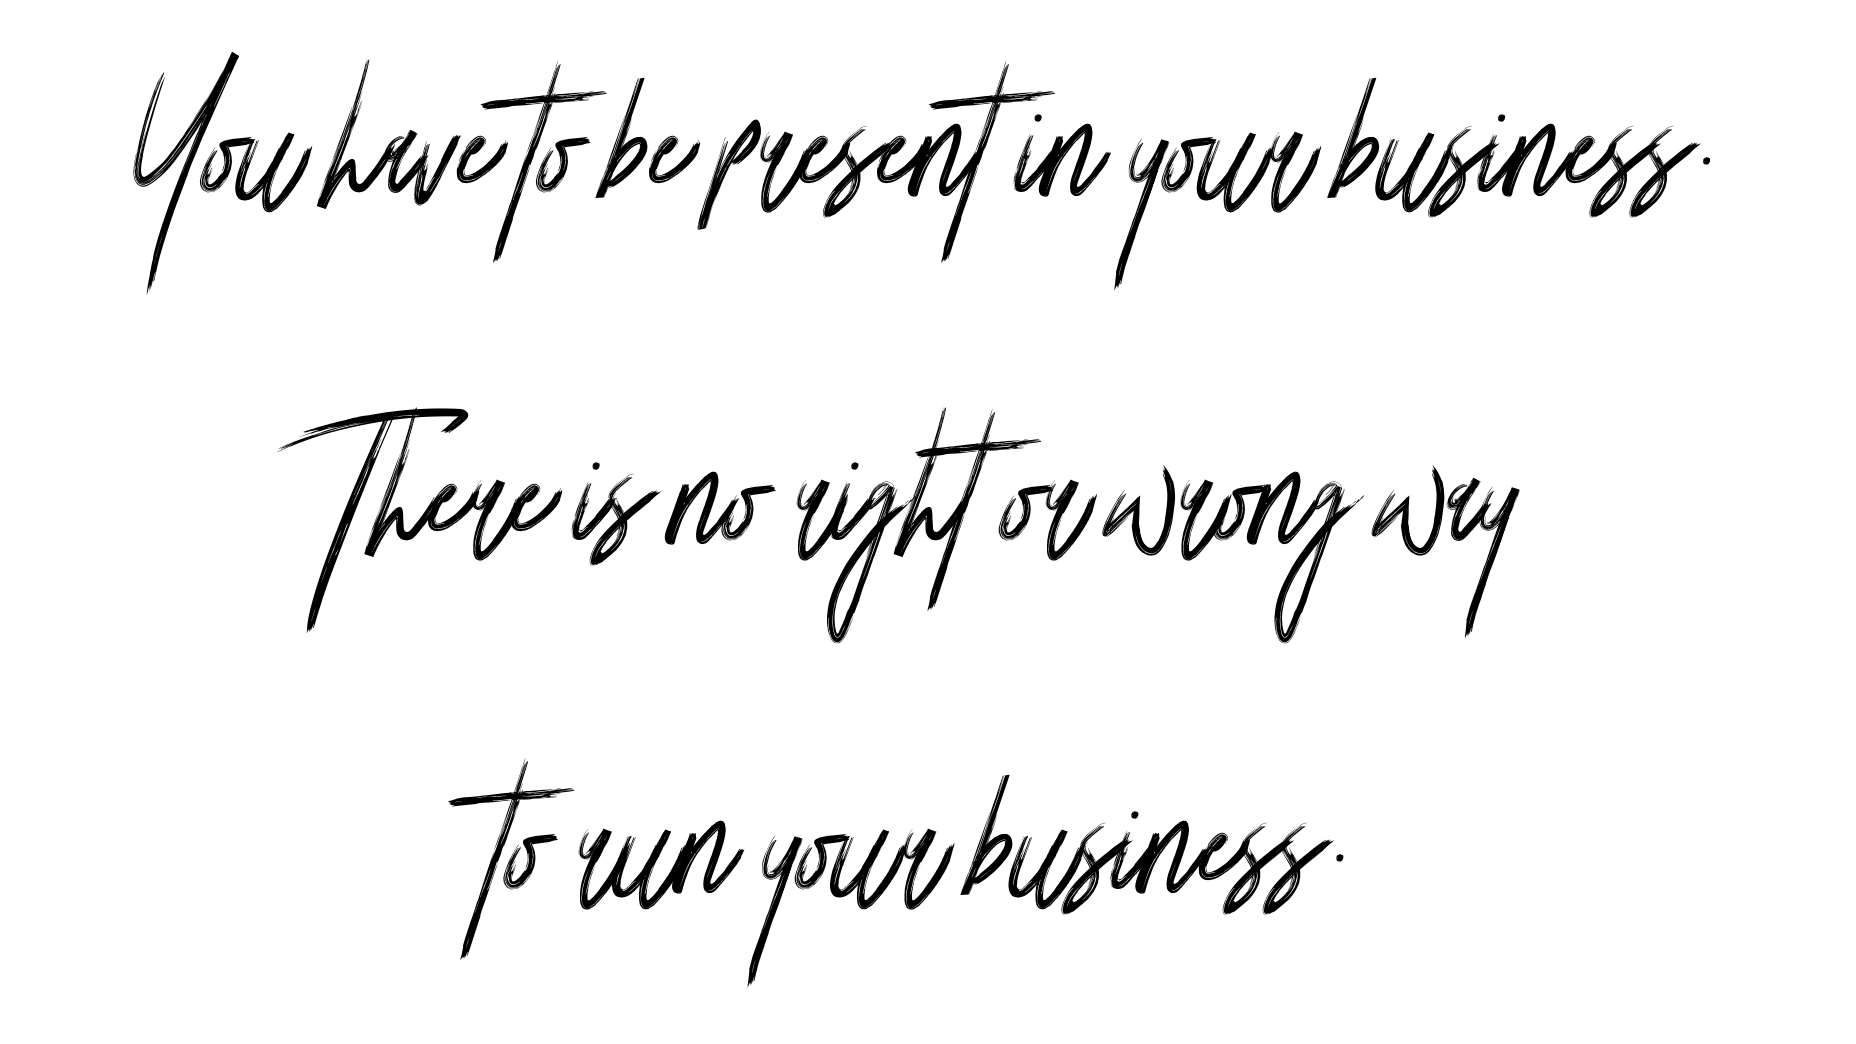 You have to be present in your business.
There is no right or wrong way
to run your business.